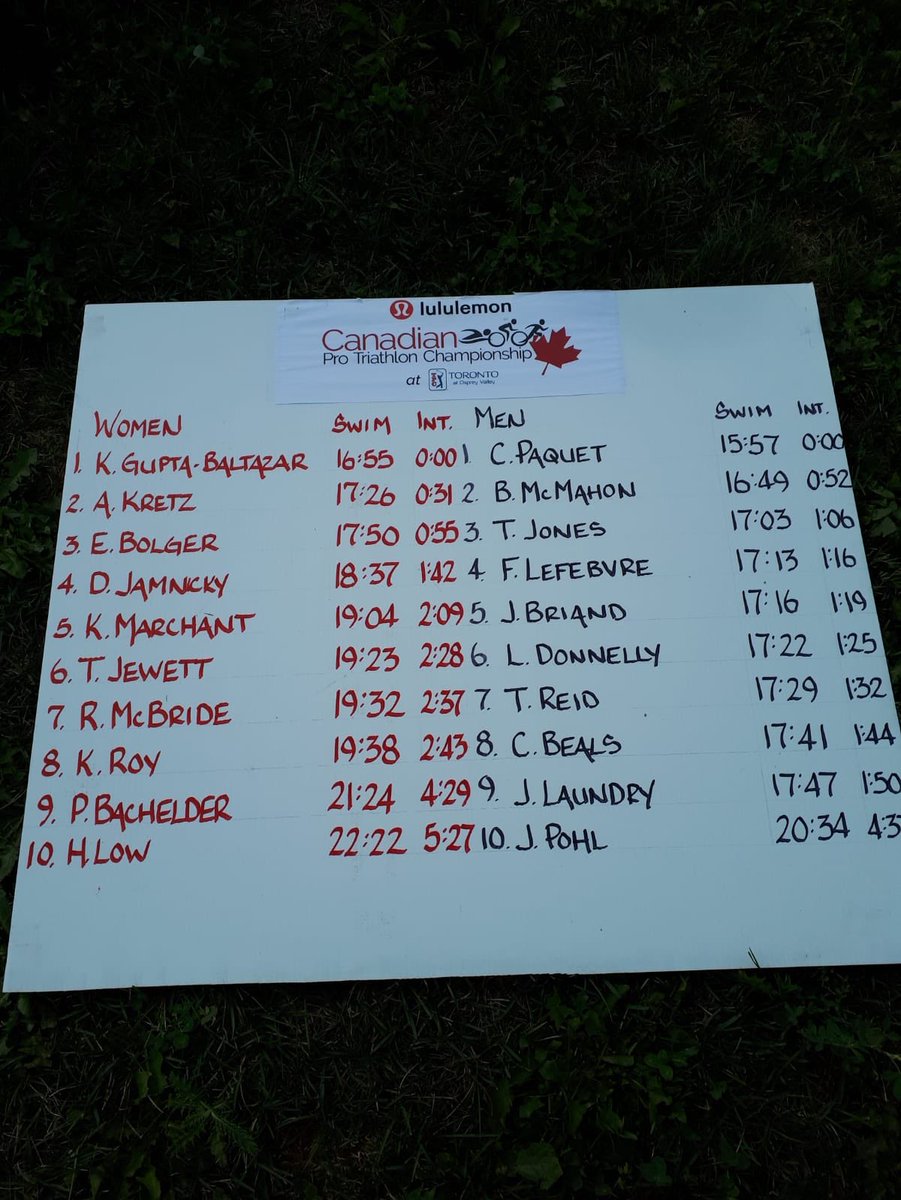 lululemon
Canadian
Pro Triathlon Championship
at TORONTO
at Osprey Valley
WOMEN SWIM INT. MEN SWIM INT.
1. K. GUPTA-BALTAZAR 16:55 0:00 1. C. PAQUET 15:57 0:00
2. A. KRETZ 17:26 0:31 2. B. McMAHON 16:49 0:52
3. E. BOLGER 17:50 0:55 3. T. JONES 17:03 1:06
4. D. JAMNICKY 18:37 1:42 4. F. LEFEBVRE 17:13 1:16
5. K. MARCHANT 19:04 2:09 5. J. BRIAND 17:16 1:19
6. T. JEWETT 19:23 2:28 6. L. DONNELLY 17:22 1:25
7. R. McBRIDE 19:32 2:37 7. T. REID 17:29 1:32
8. K. ROY 19:38 2:43 8. C. BEALS 17:41 1:44
9. P. BACHELDER 21:24 4:29 9. J. LAUNDRY 17:47 1:50
10. H. LOW 22:22 5:27 10. J. POHL 20:34